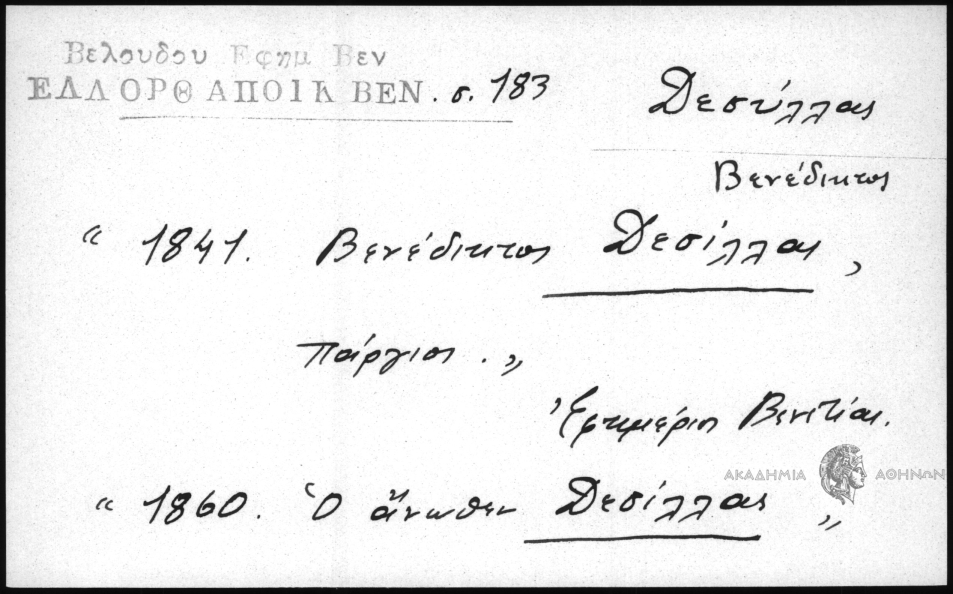 Βελουδου Εφημ Βεν
ΕΛΛ ΟΡΘ ΑΠΟΙΚ ΒΕΝ. σ. 183
Δεσύλλας
Βενέδικτος
“ 1841. Βενέδικτος Δεσίλλας,
Πάργιος.„
Ἐφημέριος Βενετίας.
ΑΚΑΔΗΜΙΑ ΑΘΗΝΩΝ
“ 1860. Ὁ ἄνωθεν Δεσίλλας „